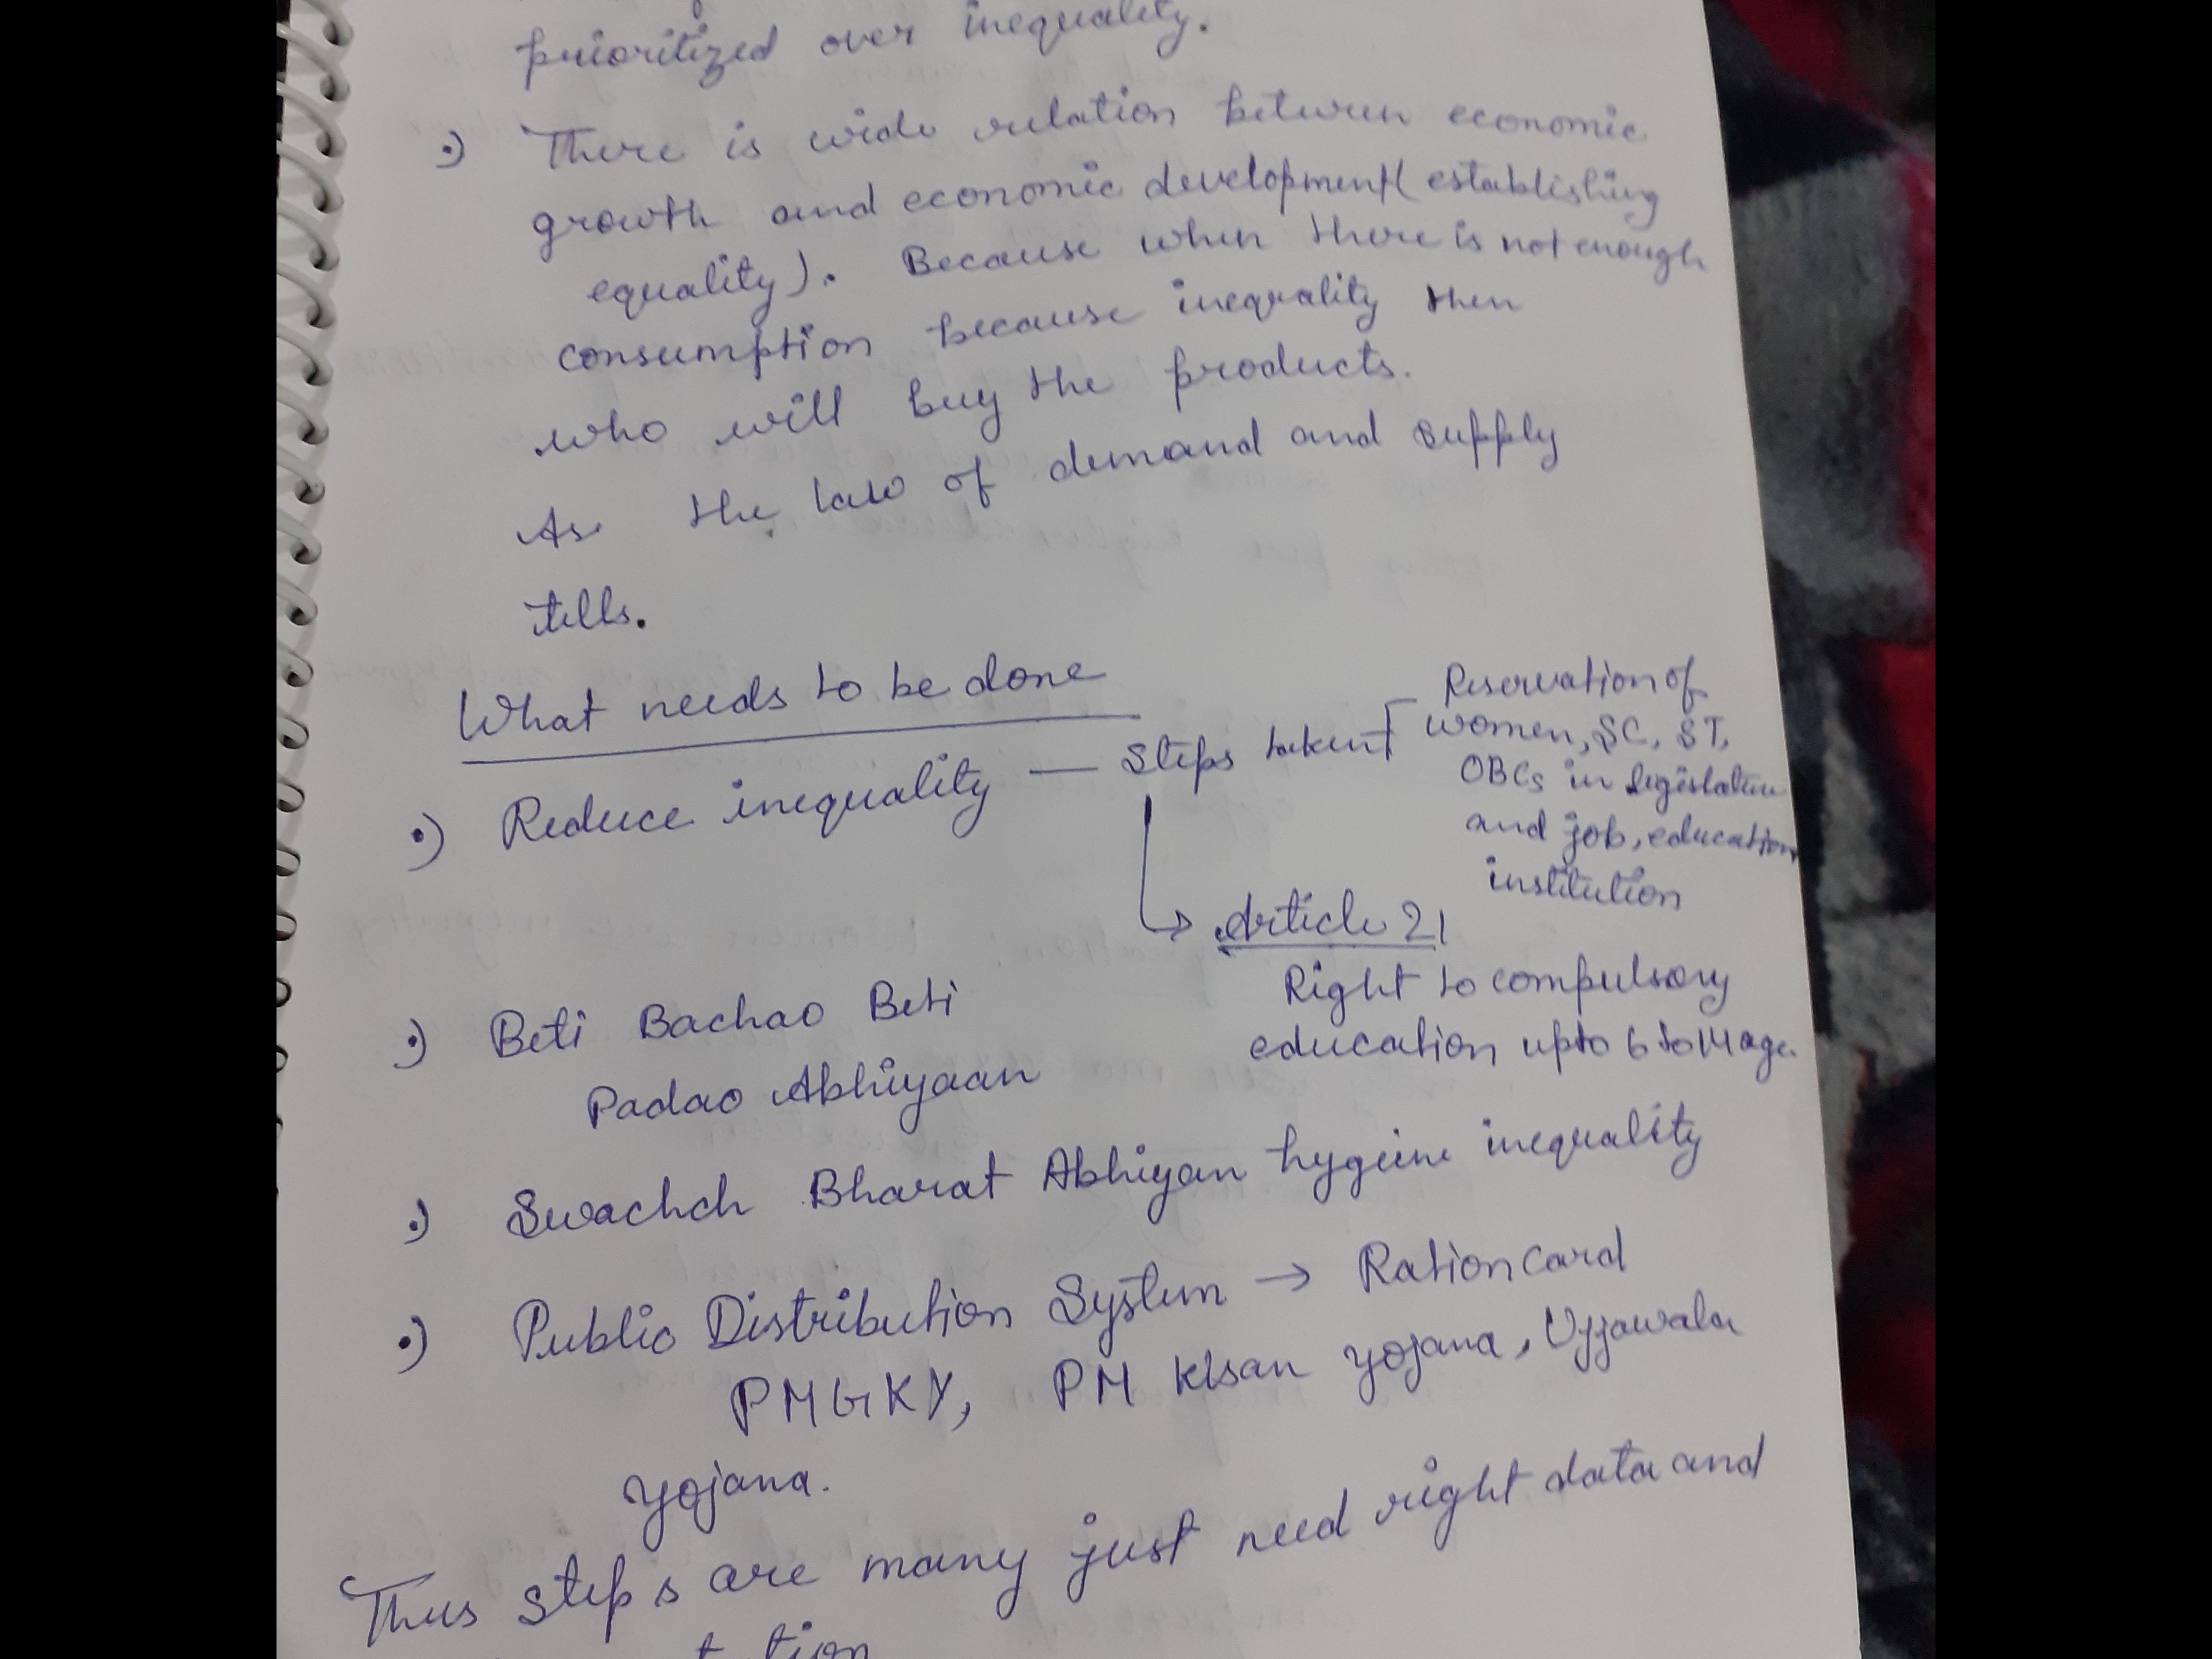 prioritized over inequality.
•) There is wide relation between economic
growth and economic development (establishing
equality). Because when there is not enough
consumption because inequality then
who will buy the products.
As the law of demand and supply
tells.
What needs to be done
•) Reduce inequality — Steps taken
Reservation of
women, SC, ST,
OBCs in legislature
and job, education
institution
→ Article 21
Right to compulsory
education upto 6 to 14 age.
•) Beti Bachao Beti
Padao Abhiyaan
•) Swachch Bharat Abhiyan hygeine inequality
•) Public Distribution System → Ration card
PMGKY, PM Kisan yojana, Ujjawala
yojana.
Thus steps are many just need right data and